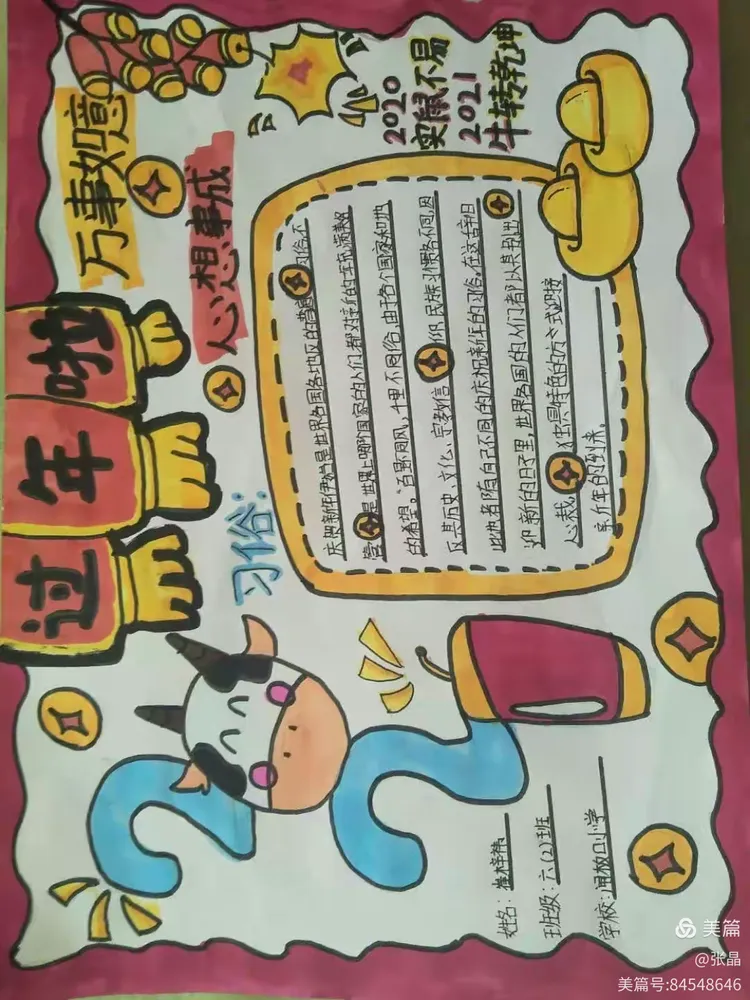 过年啦
万事如意
心想事成
2020
实鼠不易
2021
牛转乾坤
习俗:
庆祝新年伊始是世界各国各地区的普遍习俗,不
管是世界上哪个国家的人们都对新的一年充满美好
的希望。百里不同风,千里不同俗,由于各个国家和地
区其历史、文化、宗教信仰,民族习惯各不同,因
此也都有自己不同的庆祝新年的习俗,在这辞旧
迎新的日子里,世界各国的人们都以
心裁 独具特色的方式迎接
新年的到来.
2 2
姓名:
班级:六(2)班
学校: 口小学
美篇
@张晶
美篇号:84548646